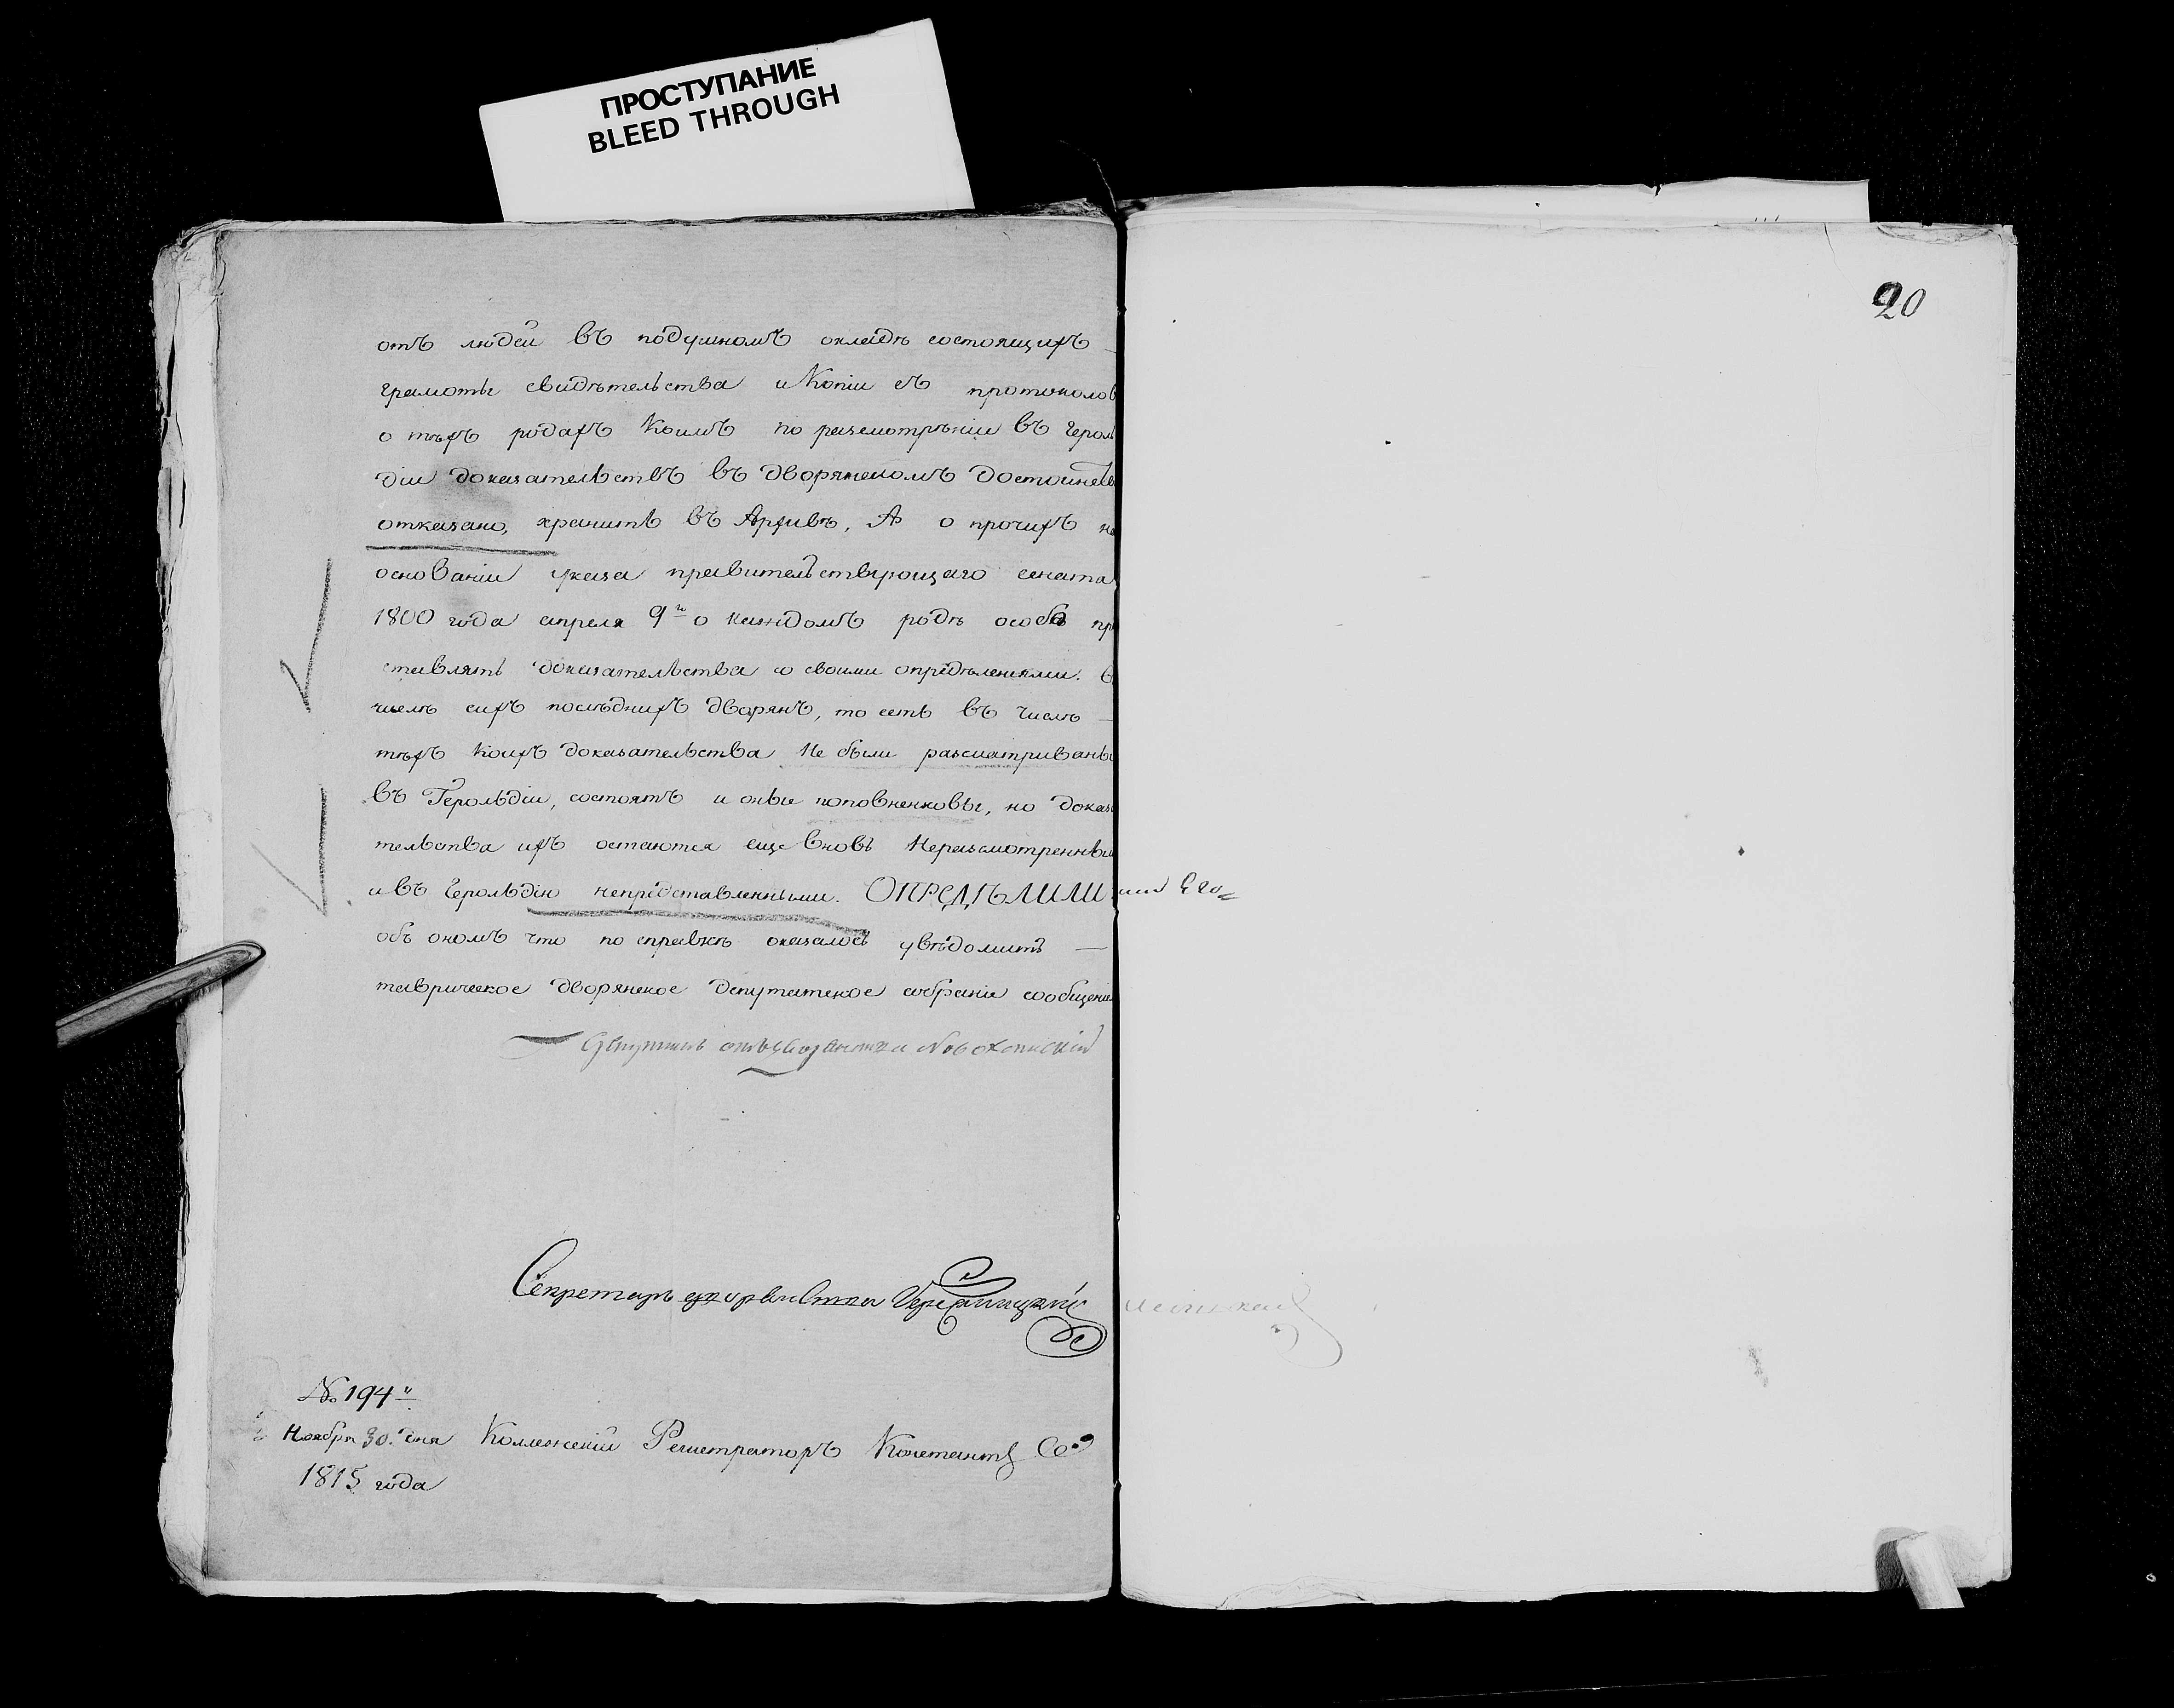 ПРОСТУПАНИЕ
BLEED THROUGH
20
отъ людей въ подушномъ окладѣ состоящихъ —
грамоты свидѣтельства и Копіи съ протоколов
о тѣхъ родахъ Коимъ по разсмотрѣніи въ герол
діи доказательствъ въ дворянскомъ достоинств
отказано, хранить въ Архивѣ, А о прочихъ на
основаніи указа правительствующаго сената
1800 года апреля 9го о каждомъ родѣ особо пр
ставлять доказательства со своими опредѣленіями. в
числѣ сихъ послѣднихъ дворянъ, то есть въ числѣ —
тѣхъ коихъ доказательства не были разсматриваны
въ Герольдіи, состоятъ и оные поповненковы, но доказа
тельства ихъ остаются еще вновь Неразсмотренны
и въ Герольдію непредставленными. ОПРЕДѢЛИЛИ
объ ономъ что по справкѣ оказалось увѣдомить —
таврическое дворянское депутатское собраніе сообщені
Секретарь
№ 194й
Ноября 30. дня Коллежскій Регистраторъ
1815 года